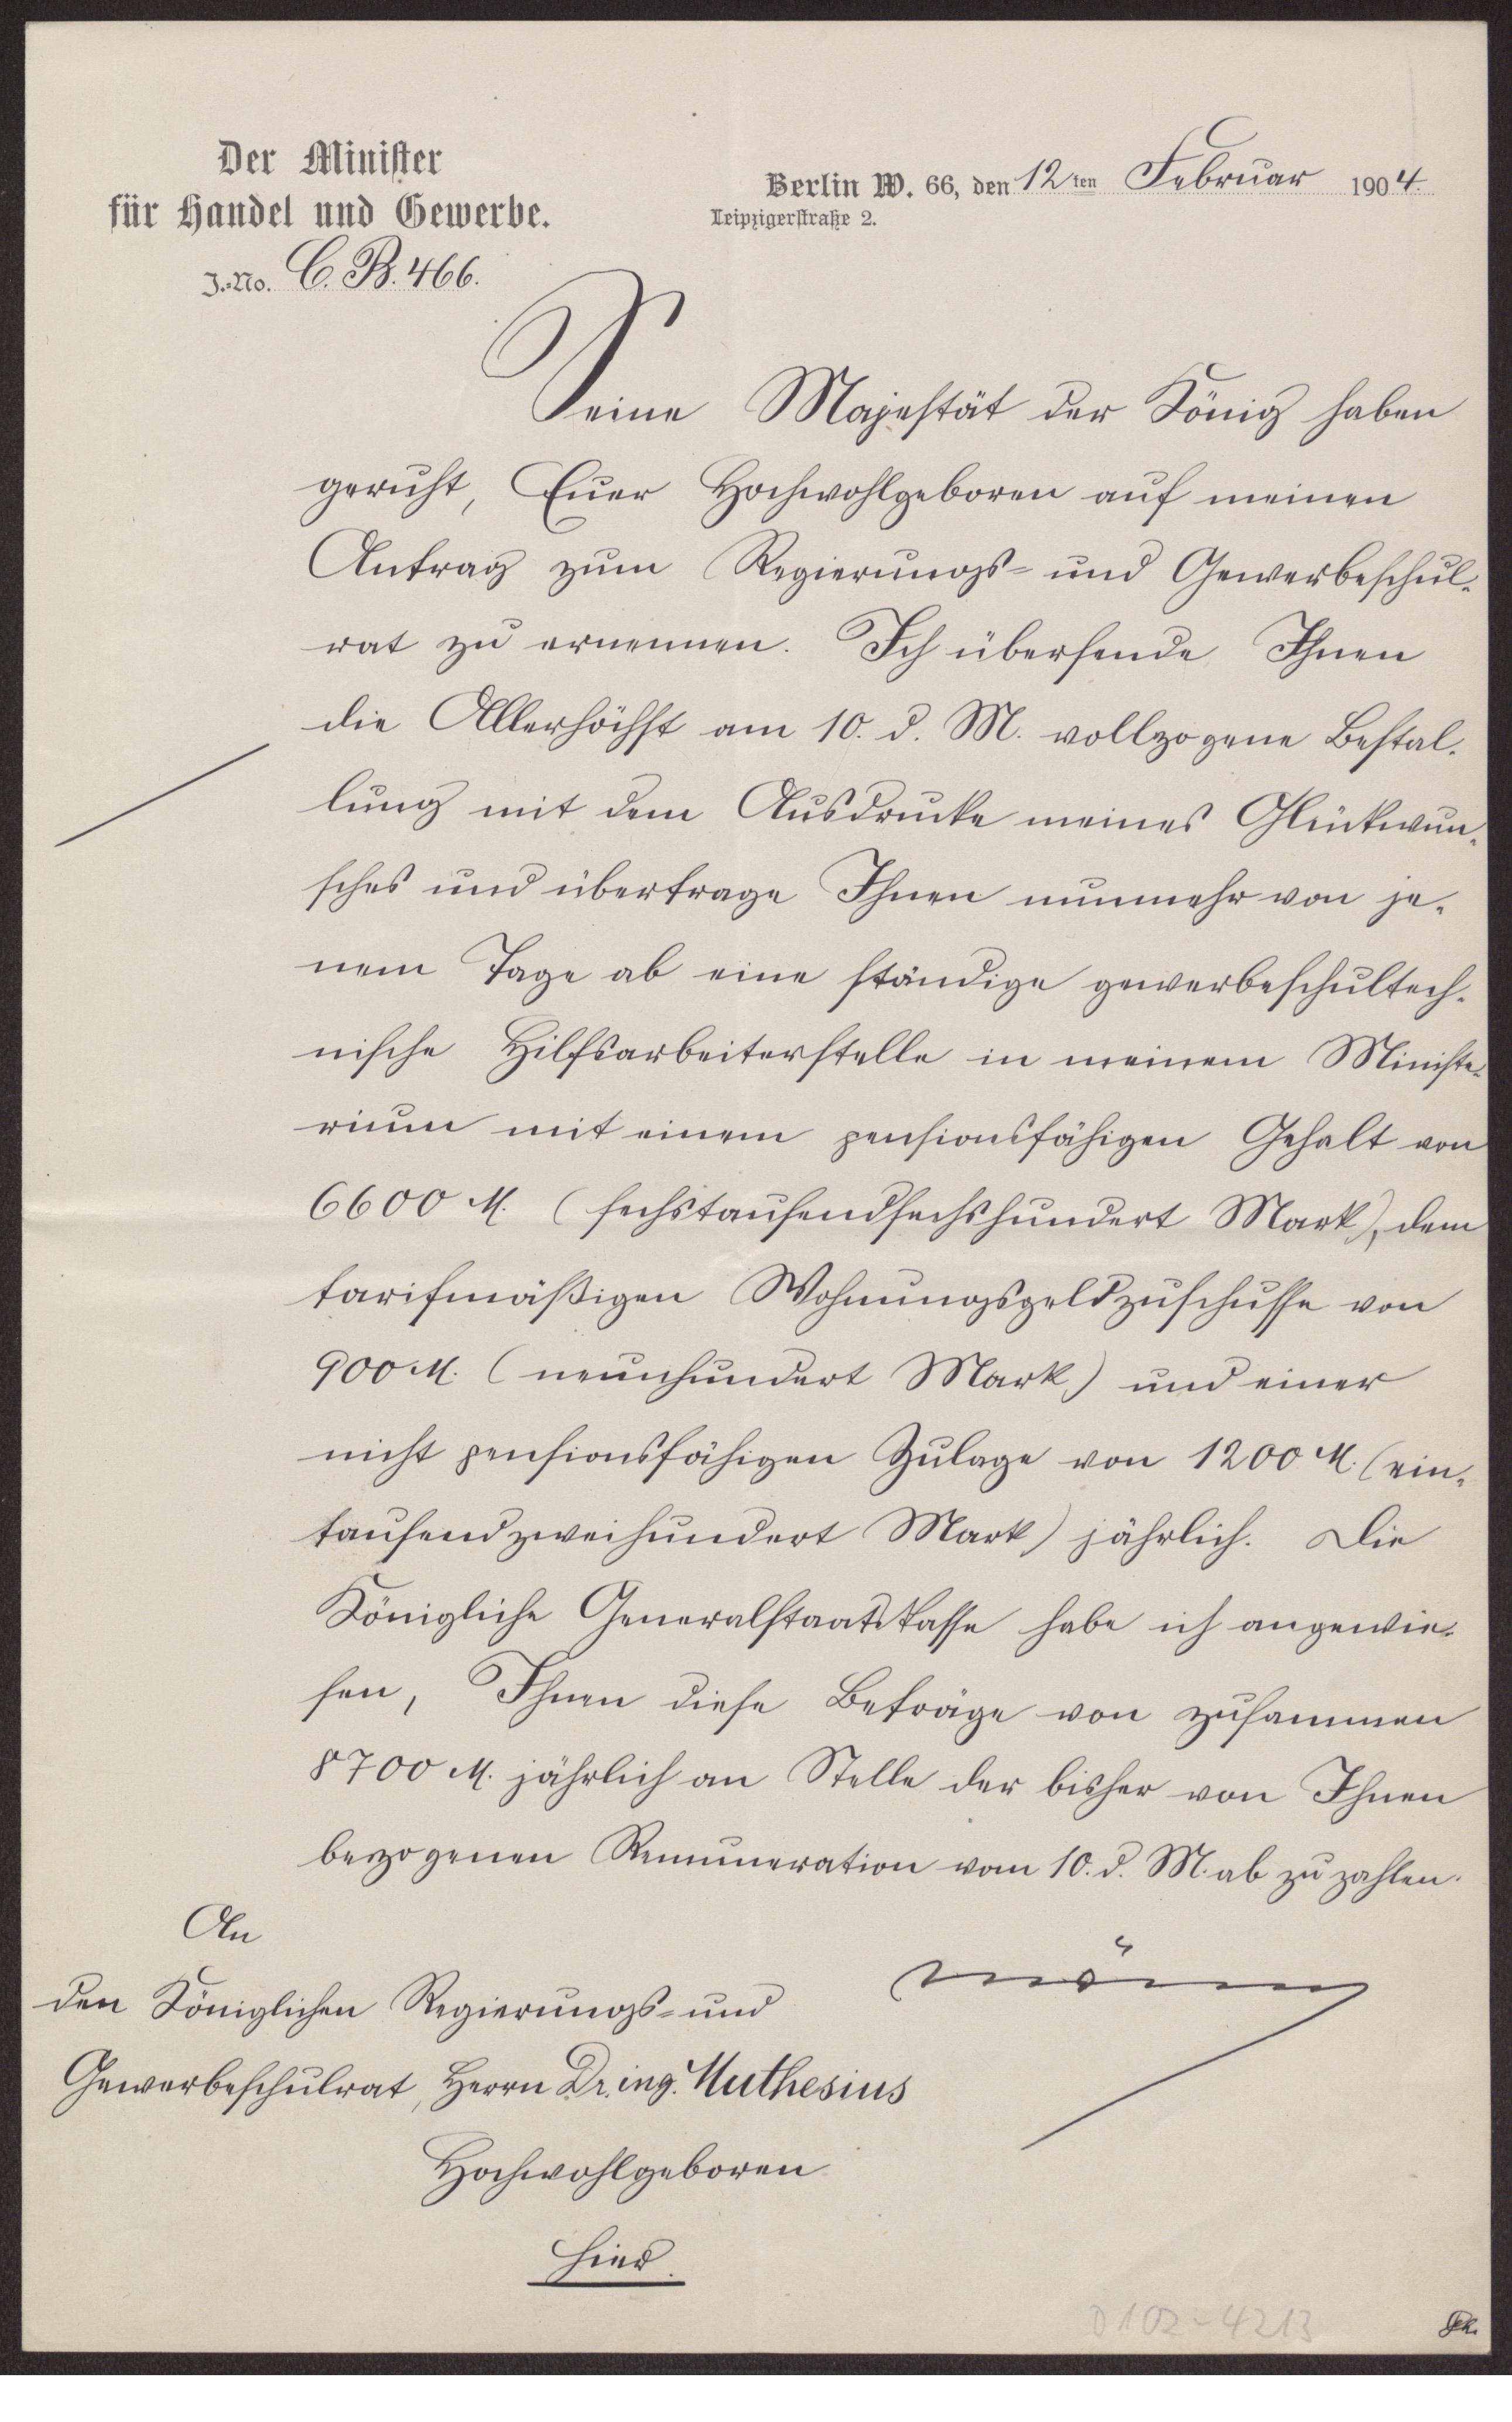 Der Minister
für Handel und Gewerbe.
J.-No. C. B. 466.
Berlin W. 66, den 12ten Februar 1904.
Leipzigerstraße 2.
Seine Majestät der König haben
geruht, Euer Hochwohlgeboren auf meinen
Antrag zum Regierungs- und Gewerbeschul-
rat zu ernennen. Ich übersende Ihnen
die Allerhöchst am 10. d. M. vollzogene Bestal-
lung mit dem Ausdrucke meines Glückwun-
sches und übertrage Ihnen nunmehr von je-
nem Tage ab eine ständige gewerbeschultech-
nische Hilfsarbeiterstelle in meinem Ministe-
rium mit einem pensionsfähigen Gehalt von
6600 M. (sechstausendsechshundert Mark), dem
tarifmäßigen Wohnungsgeldzuschusse von
900 M. (neunhundert Mark) und einer
nicht pensionsfähigen Zulage von 1200 M. (ein-
tausendzweihundert Mark) jährlich. Die
Königliche Generalstaatskasse habe ich angewie-
sen, Ihnen diese Beträge von zusammen
8700 M. jährlich an Stelle der bisher von Ihnen
bezogenen Remuneration vom 10. d. M. ab zu zahlen.
An
den Königlichen Regierungs- und
Gewerbeschulrat, Herrn Dr. ing. Muthesius
Hochwohlgeboren
hier.
D 102-4213